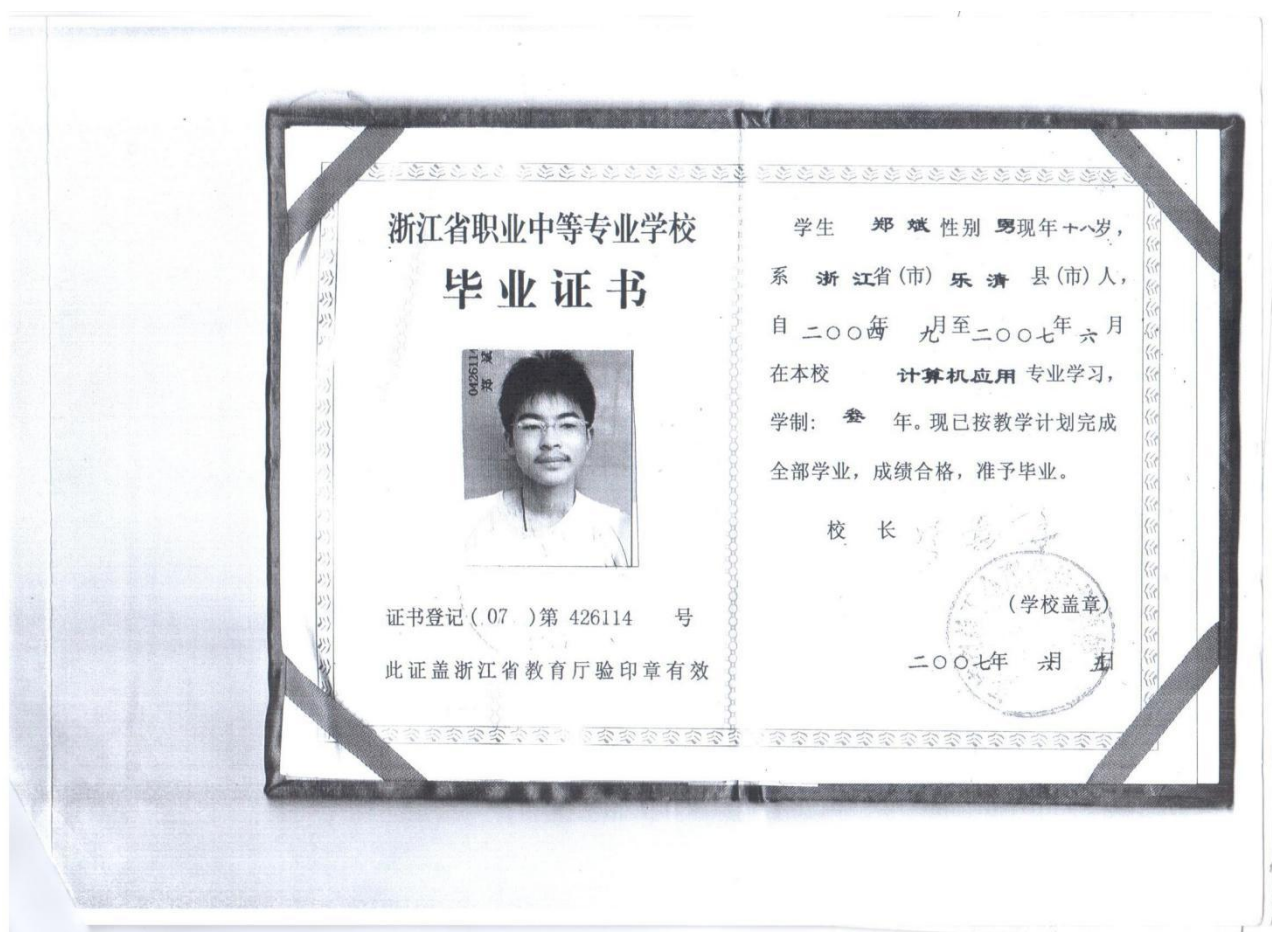 浙江省职业中等专业学校
毕业证书
0426114
郑 斌
证书登记(07)第 426114 号
此证盖浙江省教育厅验印章有效
学生 郑斌 性别 男 现年十八岁，
系 浙江省(市) 乐清 县(市)人，
自 二〇〇四年 九月至二〇〇七年六月
在本校 计算机应用 专业学习，
学制: 叁 年。现已按教学计划完成
全部学业，成绩合格，准予毕业。
校 长
(学校盖章)
二〇〇七年 六月 五日